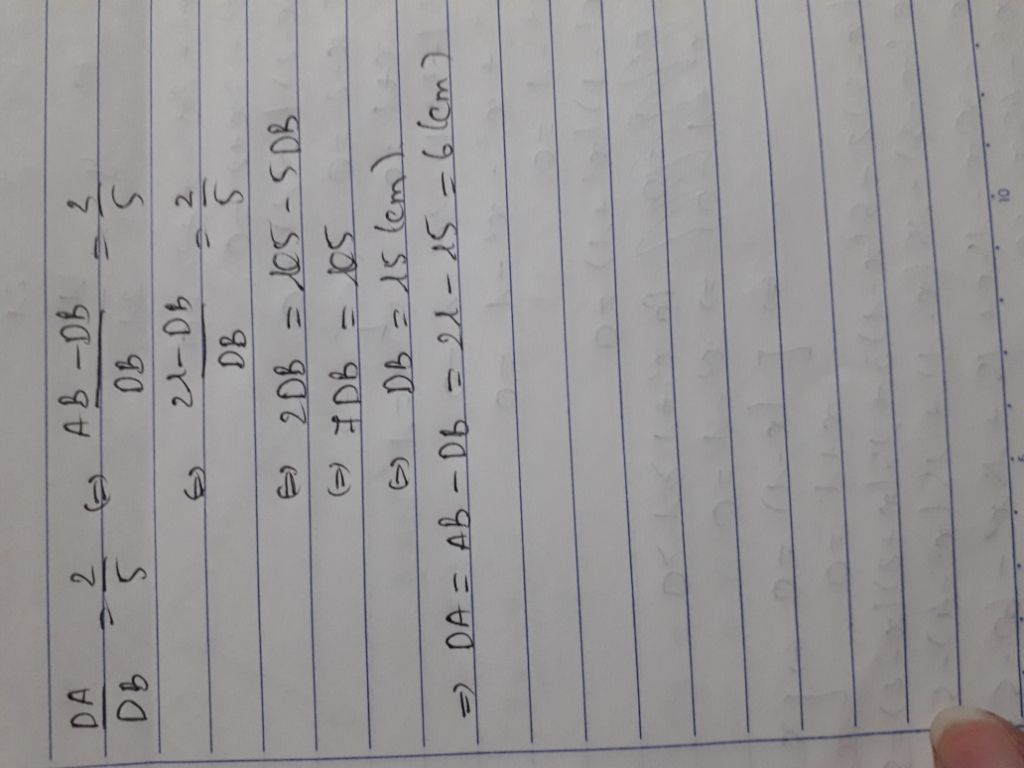 DA/DB = 2/5 (=) AB - DB/DB = 2/5
(=) 21 - DB/DB = 2/5
(=) 2DB = 105 - 5DB
(=) 7DB = 105
(=) DB = 15 (cm)
=) DA = AB - DB = 21 - 15 = 6 (cm)
10
5